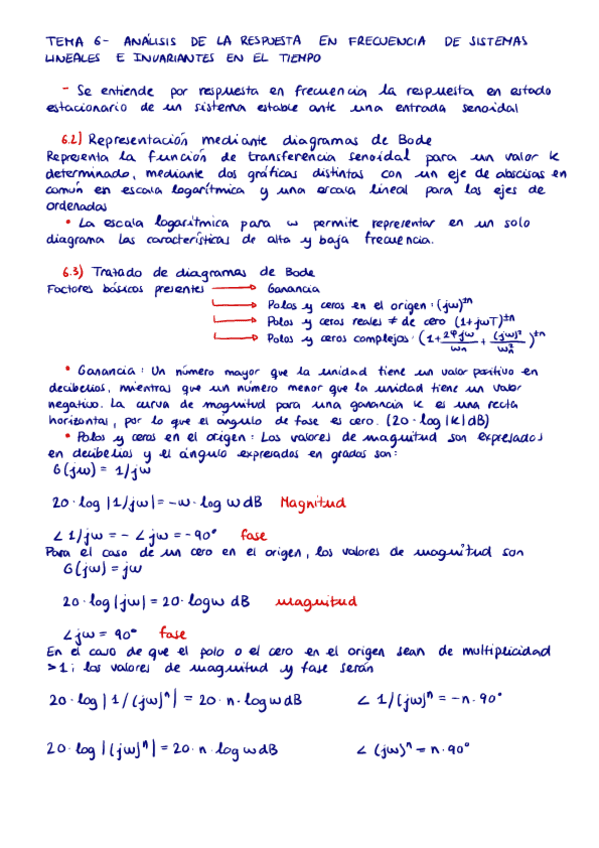 TEMA 6- ANÁLISIS DE LA RESPUESTA EN FRECUENCIA DE SISTEMAS
LINEALES E INVARIANTES EN EL TIEMPO
- Se entiende por respuesta en frecuencia la respuesta en estado
estacionario de un sistema estable ante una entrada senoidal
6.2) Representación mediante diagramas de Bode
Representa la función de transferencia senoidal para un valor K
determinado, mediante dos gráficas distintas con un eje de abscisas en
común en escala logarítmica y una escala lineal para los ejes de
ordenadas
• La escala logarítmica para ω permite representar en un solo
diagrama las características de alta y baja frecuencia.
6.3) Tratado de diagramas de Bode
Factores básicos presentes → Ganancia
→ Polos y ceros en el origen: (jω)^±n
→ Polos y ceros reales ≠ de cero (1+jωT)^±n
→ Polos y ceros complejos: (1+ 2φjω/ωn + (jω)²/ωn²)^±n
• Ganancia: Un número mayor que la unidad tiene un valor positivo en
decibelios, mientras que un número menor que la unidad tiene un valor
negativo. La curva de magnitud para una ganancia K es una recta
horizontal, por lo que el ángulo de fase es cero. (20·log|K|dB)
• Polos y ceros en el origen: Los valores de magnitud son expresados
en decibelios y el ángulo expresados en grados son:
G(jω) = 1/jω
20·log|1/jω| = -ω·log ω dB Magnitud
∠ 1/jω = - ∠ jω = -90° fase
Para el caso de un cero en el origen, los valores de magnitud son
G(jω) = jω
20·log|jω| = 20·logω dB magnitud
∠ jω = 90° fase
En el caso de que el polo o el cero en el origen sean de multiplicidad
>1; los valores de magnitud y fase serán
20·log|1/(jω)ⁿ| = 20·n·logω dB ∠ 1/(jω)ⁿ = -n·90°
20·log|(jω)ⁿ| = 20·n·logω dB ∠ (jω)ⁿ = n·90°